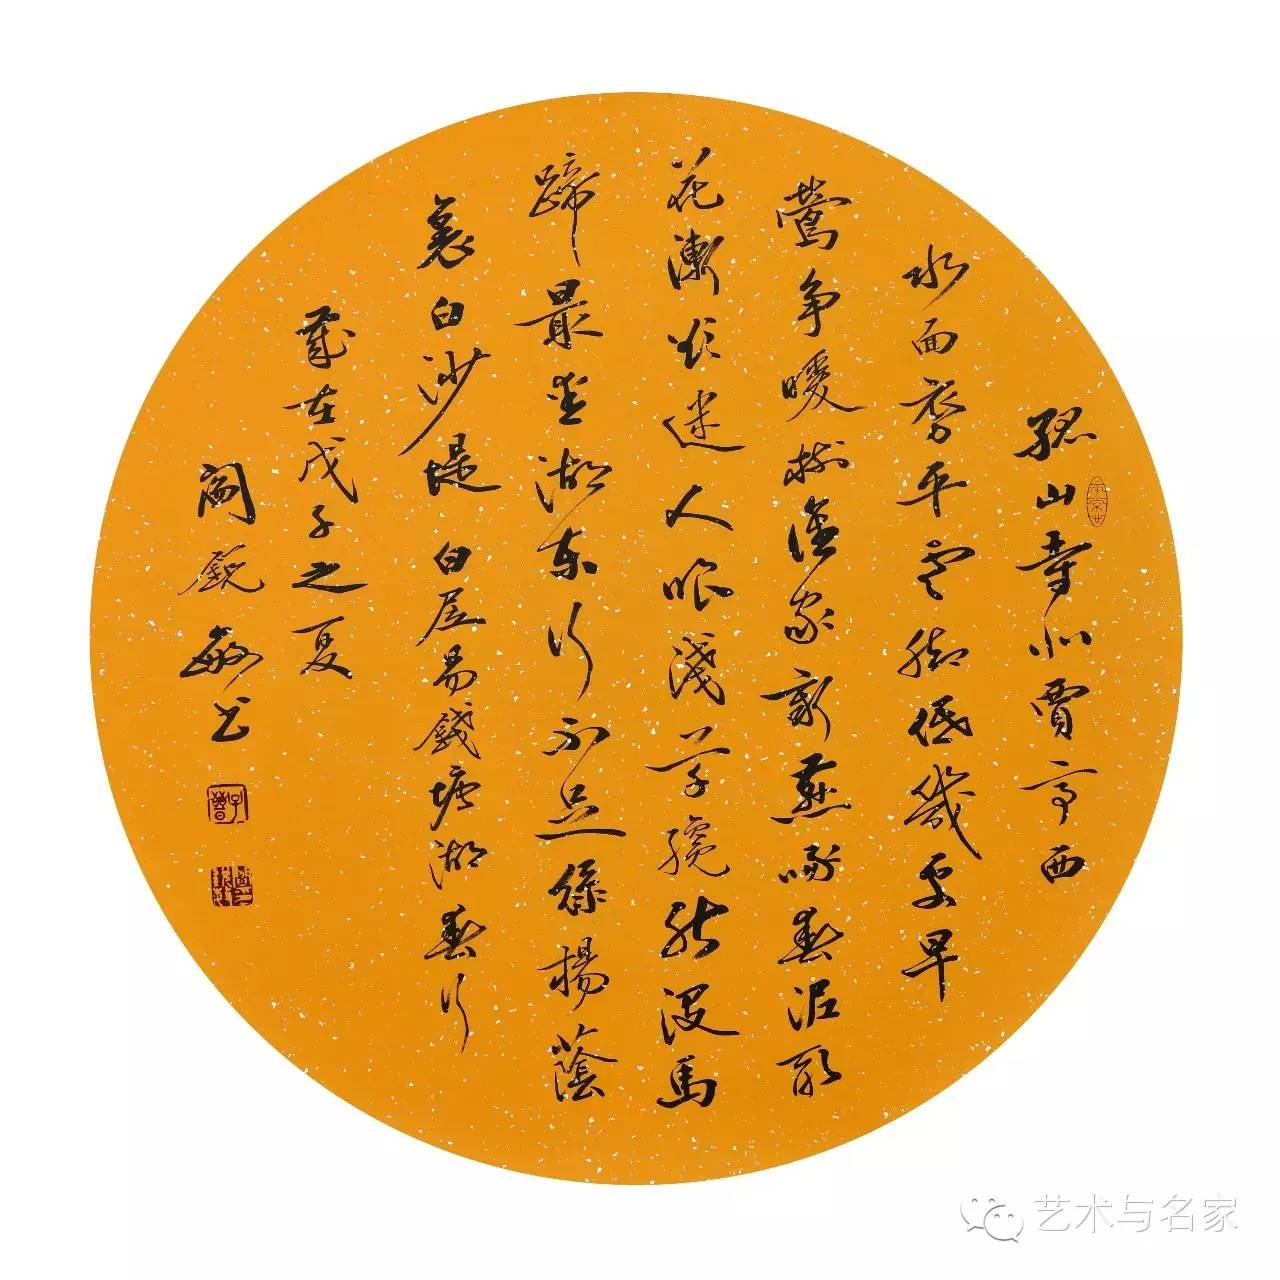 孤山寺北賈亭西
水面初平雲腳低幾處早
鶯争暖樹誰家新燕啄春泥亂
花漸欲迷人眼淺草纔能沒馬
蹄最愛湖東行不足綠楊蔭
裏白沙堤 白居易錢塘湖春行
歲在戊子之夏
閻銳敏书
艺术与名家